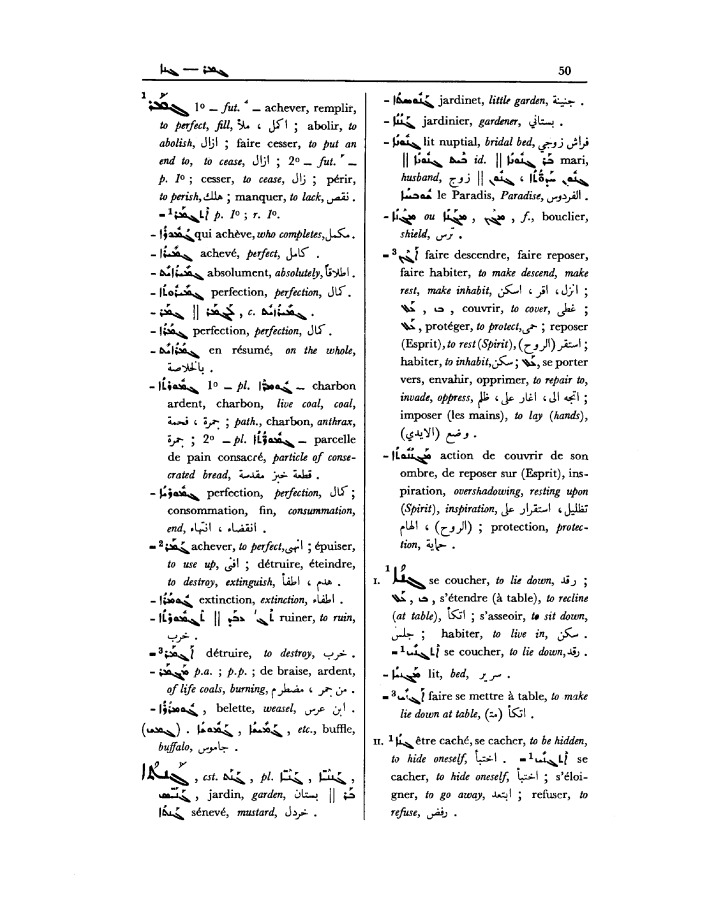 ܓܡܪ — ܓܢܐ 50
1 ܓܡܪ 1º — fut. — achever, remplir,
to perfect, fill, اكل ، ملأ ; abolir, to
abolish, ازال ; faire cesser, to put an
end to, to cease, ازال ; 2º — fut. —
p. 1º ; cesser, to cease, زال ; périr,
to perish, هلك ; manquer, to lack, نقص .
= 1 p. 1º ; r. 1º.
- ܓܡܘܪܐ qui achève, who completes, مكمل .
- ܓܡܝܪܐ achevé, perfect, كامل .
- ܓܡܝܪܐܝܬ absolument, absolutely, اطلاقاً .
- ܓܡܝܪܘܬܐ perfection, perfection, كمال .
- ܓܡܝܪ || , c. ܓܡܝܪܐܝܬ .
- ܓܡܪܐ perfection, perfection, كمال .
- ܓܡܪܐܝܬ en résumé, on the whole,
بالخلاصة .
- ܓܡܘܪܬܐ 1º — pl. — charbon
ardent, charbon, live coal, coal,
جمرة ، فحمة ; path., charbon, anthrax,
جمرة ; 2º — pl. — parcelle
de pain consacré, particle of conse-
crated bread, قطعة خبز مقدسة .
- perfection, perfection, كمال ;
consommation, fin, consummation,
end, انقضاء ، انتهاء .
= 2 achever, to perfect, انهى ; épuiser,
to use up, افنى ; détruire, éteindre,
to destroy, extinguish, هدم ، اطفأ .
- extinction, extinction, اطفاء .
- || ruiner, to ruin,
خرب .
= 3 ܐܓܡܪ détruire, to destroy, خرب .
- p.a. ; p.p. ; de braise, ardent,
of life coals, burning, من جمر ، مضطرم .
- , belette, weasel, ابن عرس .
( ) . , , etc., buffle,
buffalo, جاموس .
ܓܢܬܐ , cst. ܓܢܬ , pl. , ,
, jardin, garden, بستان ||
sénevé, mustard, خردل .
- jardinet, little garden, جنينة .
- ܓܢܢܐ jardinier, gardener, بستاني .
- ܓܢܘܢܐ lit nuptial, bridal bed, فراش زوجي
|| id. || ܒܪ ܓܢܘܢܐ mari,
husband, زوج ||
le Paradis, Paradise, الفردوس .
- ou , , f., bouclier,
shield, ترس .
= 3 faire descendre, faire reposer,
faire habiter, to make descend, make
rest, make inhabit, انزل ، اقر ، اسكن ;
ܥܠ , ܒ , couvrir, to cover, غطى ;
ܥܠ , protéger, to protect, حمى ; reposer
(Esprit), to rest (Spirit), (الروح) استقر ;
habiter, to inhabit, سكن ; ܥܠ , se porter
vers, envahir, opprimer, to repair to,
invade, oppress, اتجه الى ، اغار على ، ظلم ;
imposer (les mains), to lay (hands),
وضع (الايدي) .
- ܡܓܢܢܘܬܐ action de couvrir de son
ombre, de reposer sur (Esprit), ins-
piration, overshadowing, resting upon
(Spirit), inspiration, تظليل ، استقرار على
(الروح) ، الهام ; protection, protec-
tion, حماية .
I. 1 ܓܢܐ se coucher, to lie down, رقد ;
ܥܠ , ܒ , s'étendre (à table), to recline
(at table), اتكأ ; s'asseoir, to sit down,
جلس ; habiter, to live in, سكن .
= 1 se coucher, to lie down, رقد .
- lit, bed, سرير .
= 3 faire se mettre à table, to make
lie down at table, اتكأ (مت) .
II. 1 ܓܢܐ être caché, se cacher, to be hidden,
to hide oneself, اختبأ . = 1 se
cacher, to hide oneself, اختبأ ; s'éloi-
gner, to go away, ابتعد ; refuser, to
refuse, رفض .